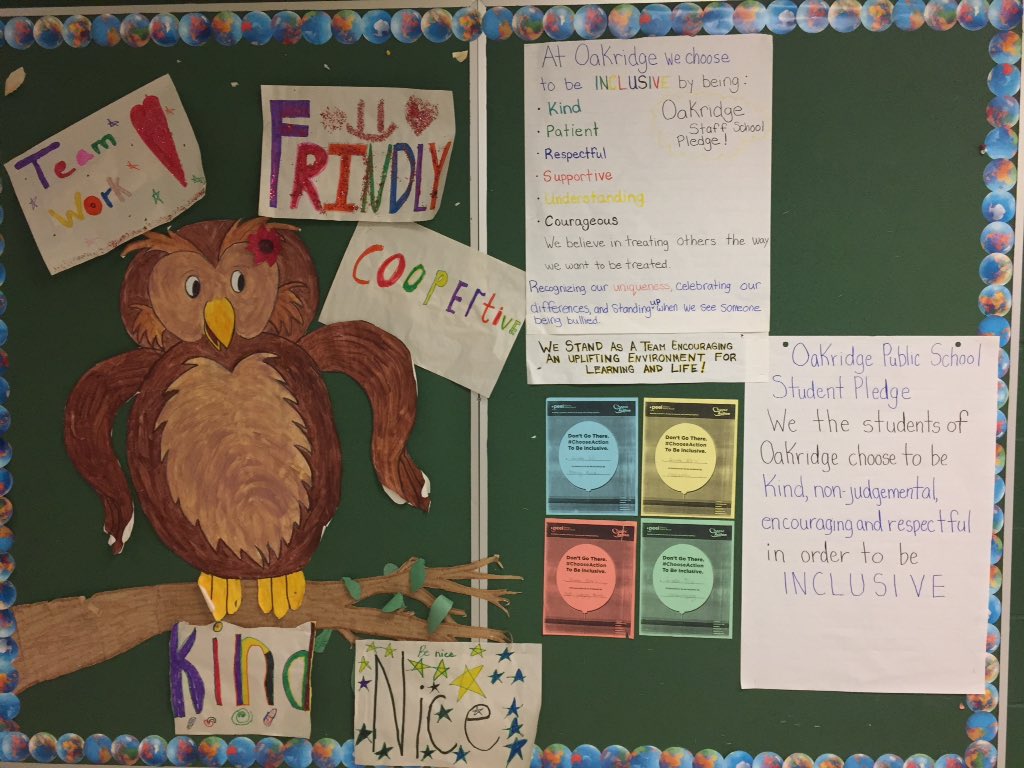 Team
Work
FRINDLY
COOPERtive
Kind
Be nice
Nice
At Oakridge we choose
to be INCLUSIVE by being:
· Kind
· Patient
· Respectful
· Supportive
· Understanding
· Courageous
Oakridge
Staff School
Pledge!
We believe in treating others the way
we want to be treated.
Recognizing our uniqueness, celebrating our
differences, and standing up when we see someone
being bullied.
WE STAND AS A TEAM ENCOURAGING
AN UPLIFTING ENVIRONMENT FOR
LEARNING AND LIFE!
peel
Don't Go There.
#ChooseAction
To Be Inclusive.
peel
Don't Go There.
#ChooseAction
To Be Inclusive.
peel
Don't Go There.
#ChooseAction
To Be Inclusive.
peel
Don't Go There.
#ChooseAction
To Be Inclusive.
Oakridge Public School
Student Pledge
We the students of
Oakridge choose to be
Kind, non-judgemental,
encouraging and respectful
in order to be
INCLUSIVE